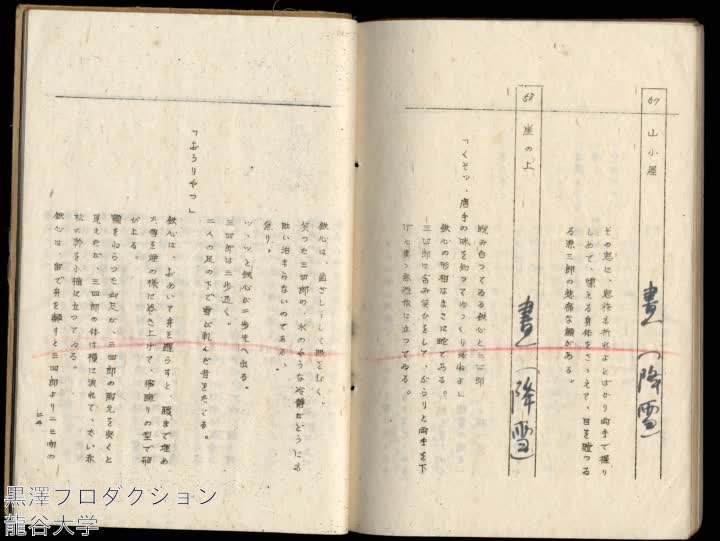 67 山小屋
晝 (降雪)
その窓に、窓枠も折れよとばかり両手で握り
しめて、喋える身体をさゝえて、目を瞠つる
源三郎の悲痛な顔がある。
68 崖の上
晝 (降雪)
睨み合つてゐる鉄心と三四郎
「くそッ、唐手の味を知つてゆつくり
鉄心の形相はまさに蛇である。
三四郎は含み笑ひをして、だらりと両手を下
げた儘、無造作に立つてゐる。
鉄心は、歯ぎしりして眼をむく。
笑つた三四郎の、氷のような冷静がどうにも
肚い治まらないのである。
怒り。
ツ、ツと鉄心が二歩先へ出る。
三四郎は二歩退く。
二人の足の下で雪が軋んだ音をたてる。
「おうりやつ」
鉄心は、よめいて身を躍らすと、膝まで埋め
た雪を煙の様に巻き上げて、猿廻りの型で飛
び上る。
顔をねらつた右足が、三四郎の胸元を突くと
見えたが、三四郎の体は横に流れて、太い赤
松の幹を小楯に立つてゐる。
鉄心は、宙で身を翻すと三四郎より二三間の
二四
黒澤プロダクション
龍谷大学